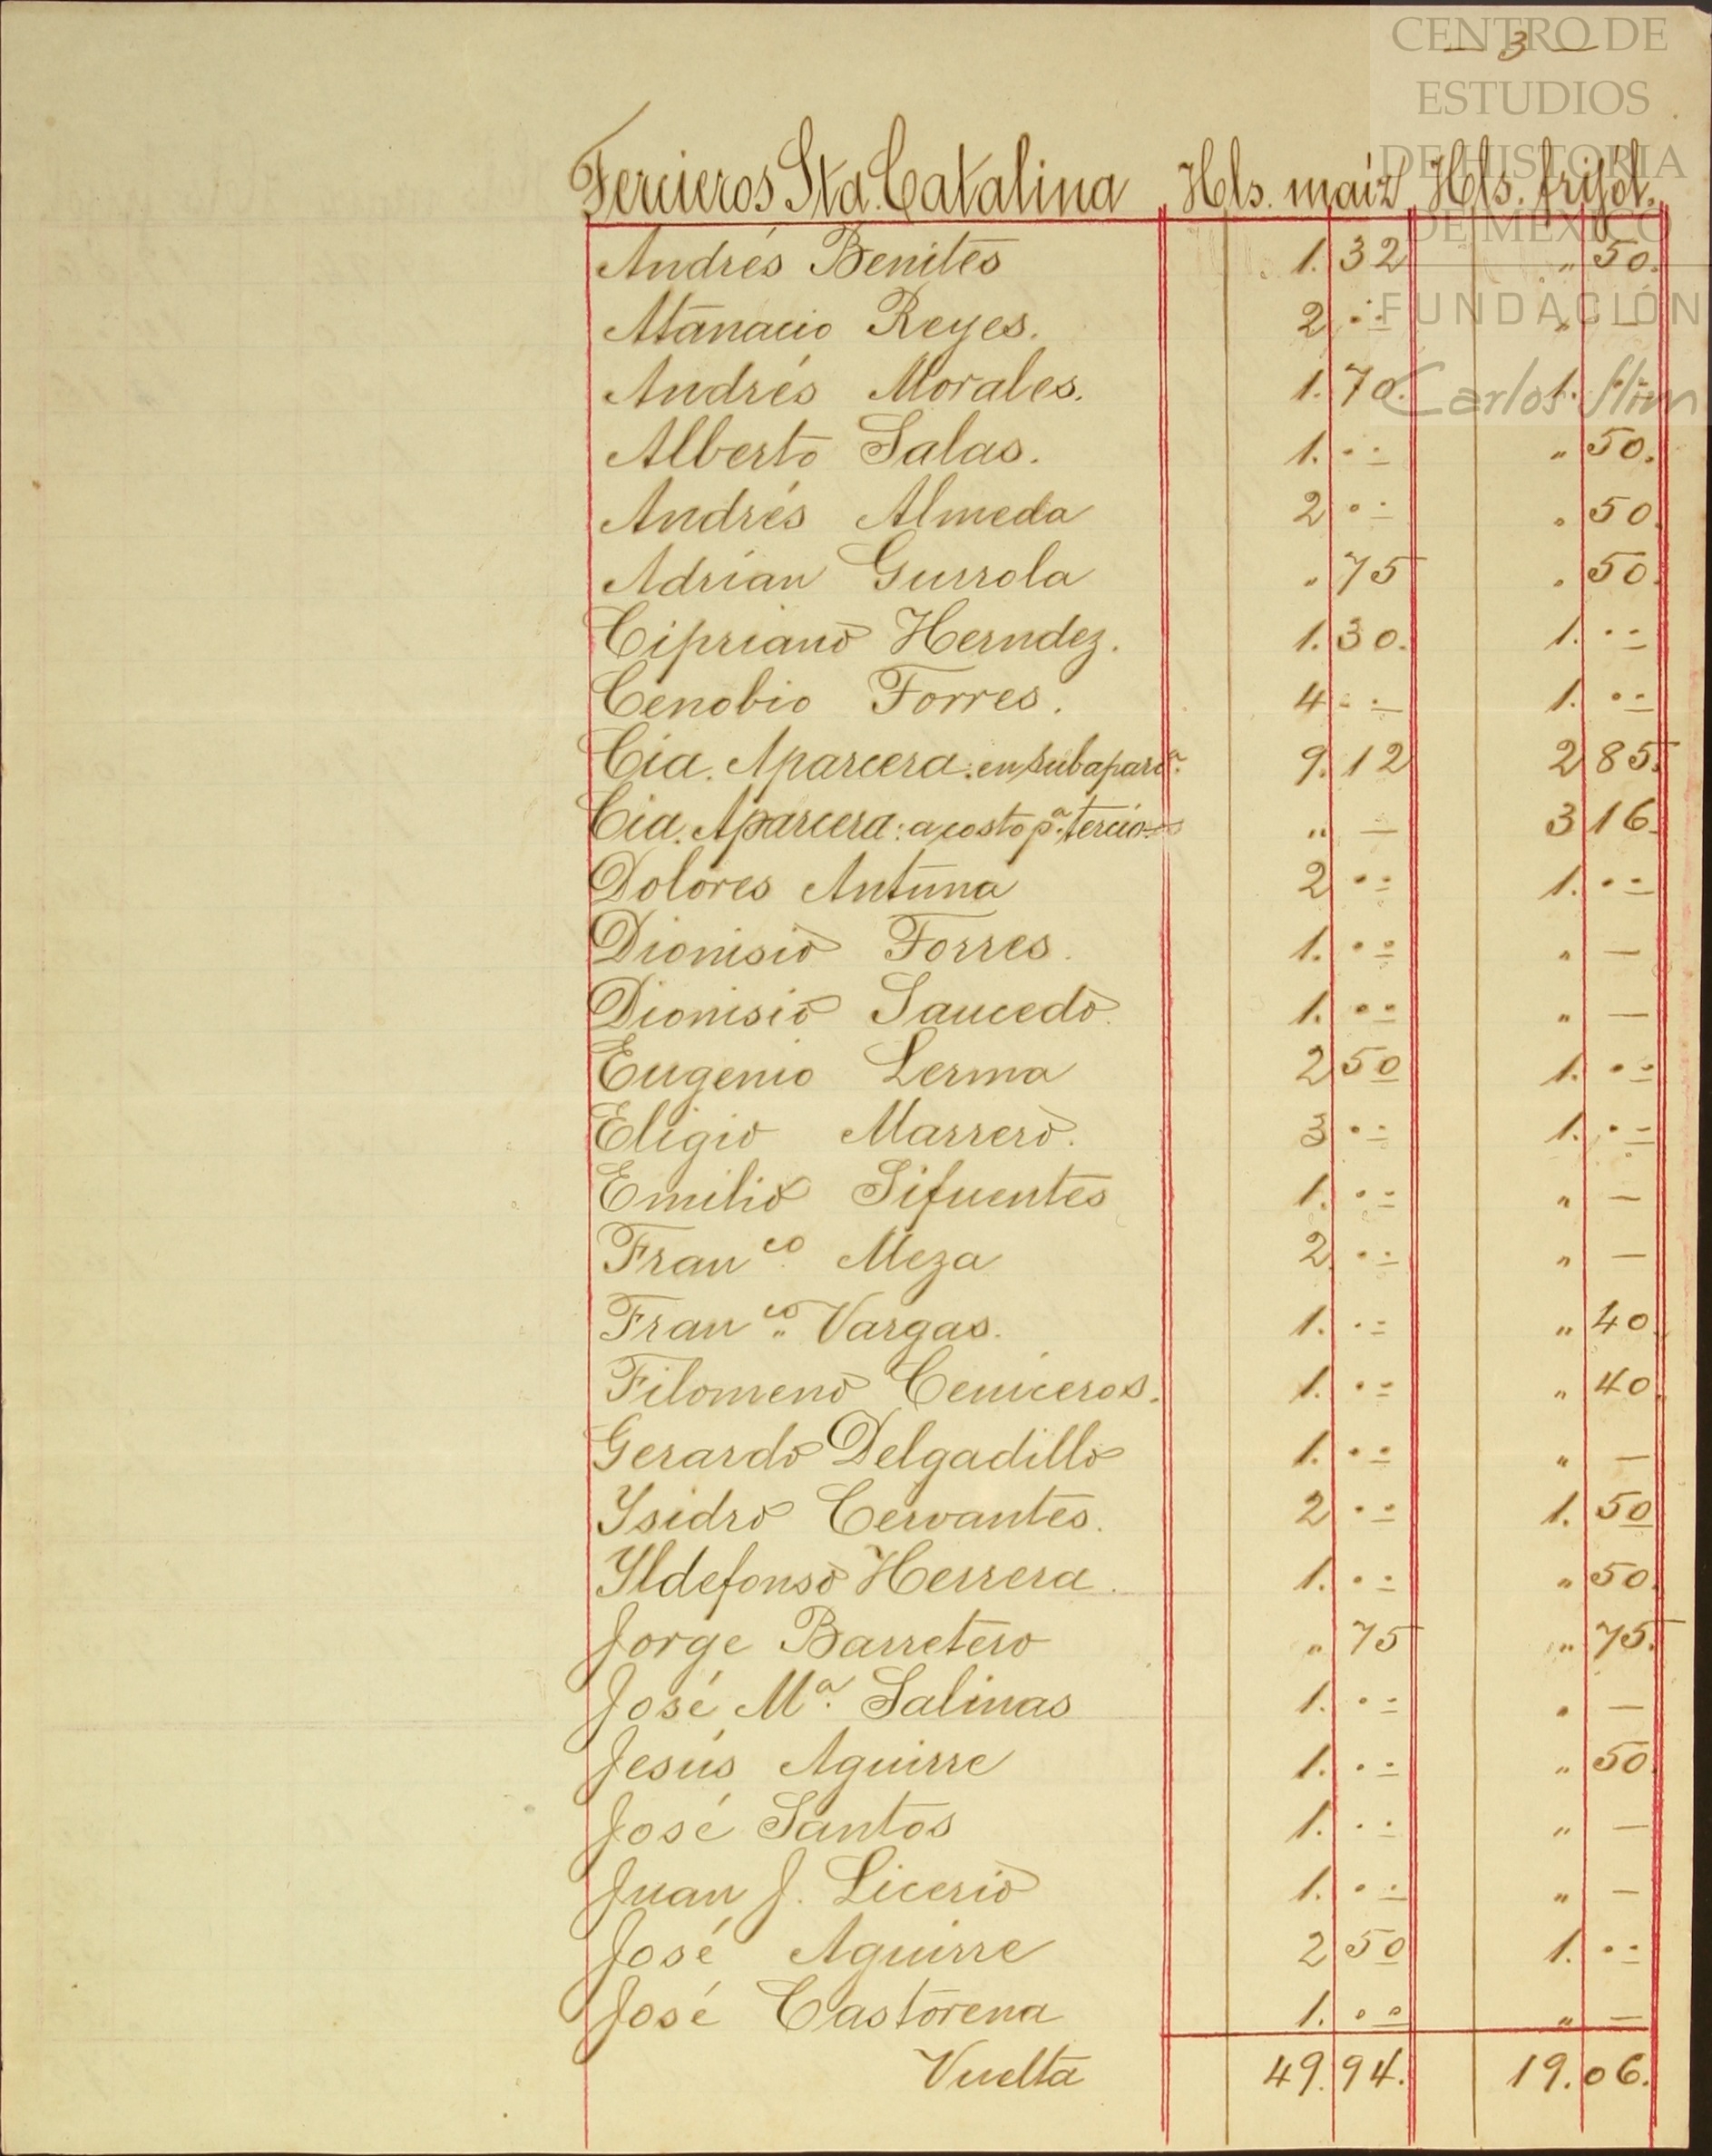 CENTRO DE
ESTUDIOS
DE HISTORIA
DE MEXICO
FUNDACIÓN
Carlos Slim
— 3 —
Tercieros Sta. Catalina Hls. maíz Hls. frijol.
Andrés Benites 1. 32 " 50.
Atanacio Reyes. 2 .. " —
Andrés Morales. 1. 70. 1. ..
Alberto Salas. 1. .. " 50.
Andrés Almeda 2 .. " 50.
Adrian Gurrola " 75 " 50.
Cipriano Herndez. 1. 30. 1. ..
Cenobio Torres. 4 .. 1. ..
Cía. Aparcera: en subaparca. 9. 12 2 85.
Cía. Aparcera: a costo pa. tercio " — 3 16.
Dolores Antuna 2 .. 1. ..
Dionisio Torres. 1. .. " —
Dionisio Saucedo. 1. .. " —
Eugenio Lerma 2 50 1. ..
Eligio Marrero. 3 .. 1. ..
Emilio Sifuentes 1. .. " —
Franco. Meza 2 .. " —
Franco. Vargas. 1. .. " 40.
Filomeno Ceniceros. 1. .. " 40.
Gerardo Delgadillo 1. .. " —
Ysidro Cervantes. 2 .. 1. 50
Yldefonso Herrera. 1. .. " 50.
Jorge Barretero " 75 " 75.
José Ma. Salinas 1. .. " —
Jesús Aguirre 1. .. " 50.
José Santos 1. .. " —
Juan J. Licerio 1. .. " —
José Aguirre 2 50 1. ..
José Castorena 1. .. " —
Vuelta 49. 94. 19. 06.